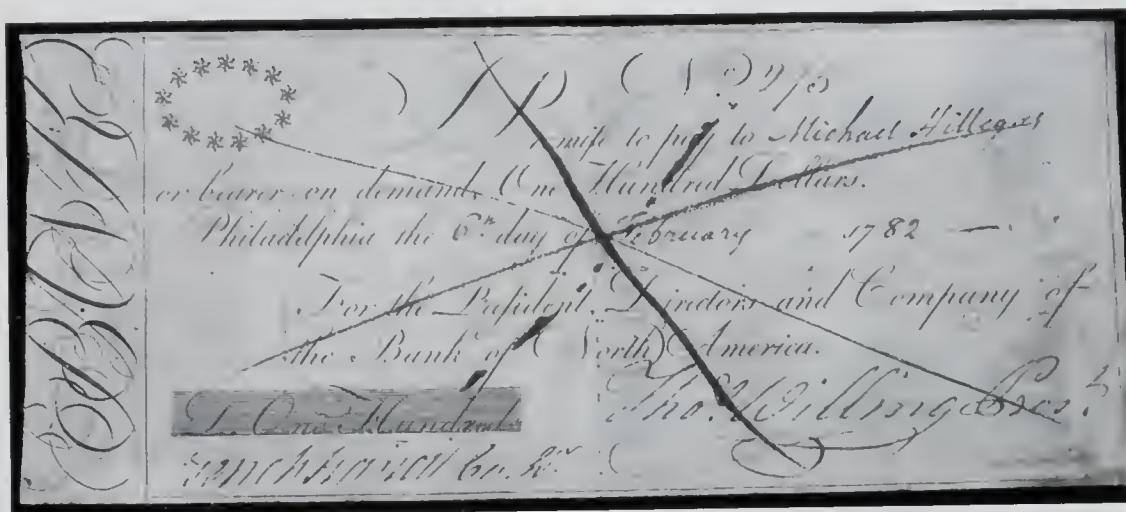 promise to pay to Michael Hillegas
or bearer on demand, One Hundred Dollars.
Philadelphia the 6th day of February 1782
For the President, Directors and Company of
the Bank of North America.
Tho. Willing Prest.
D. One Hundred